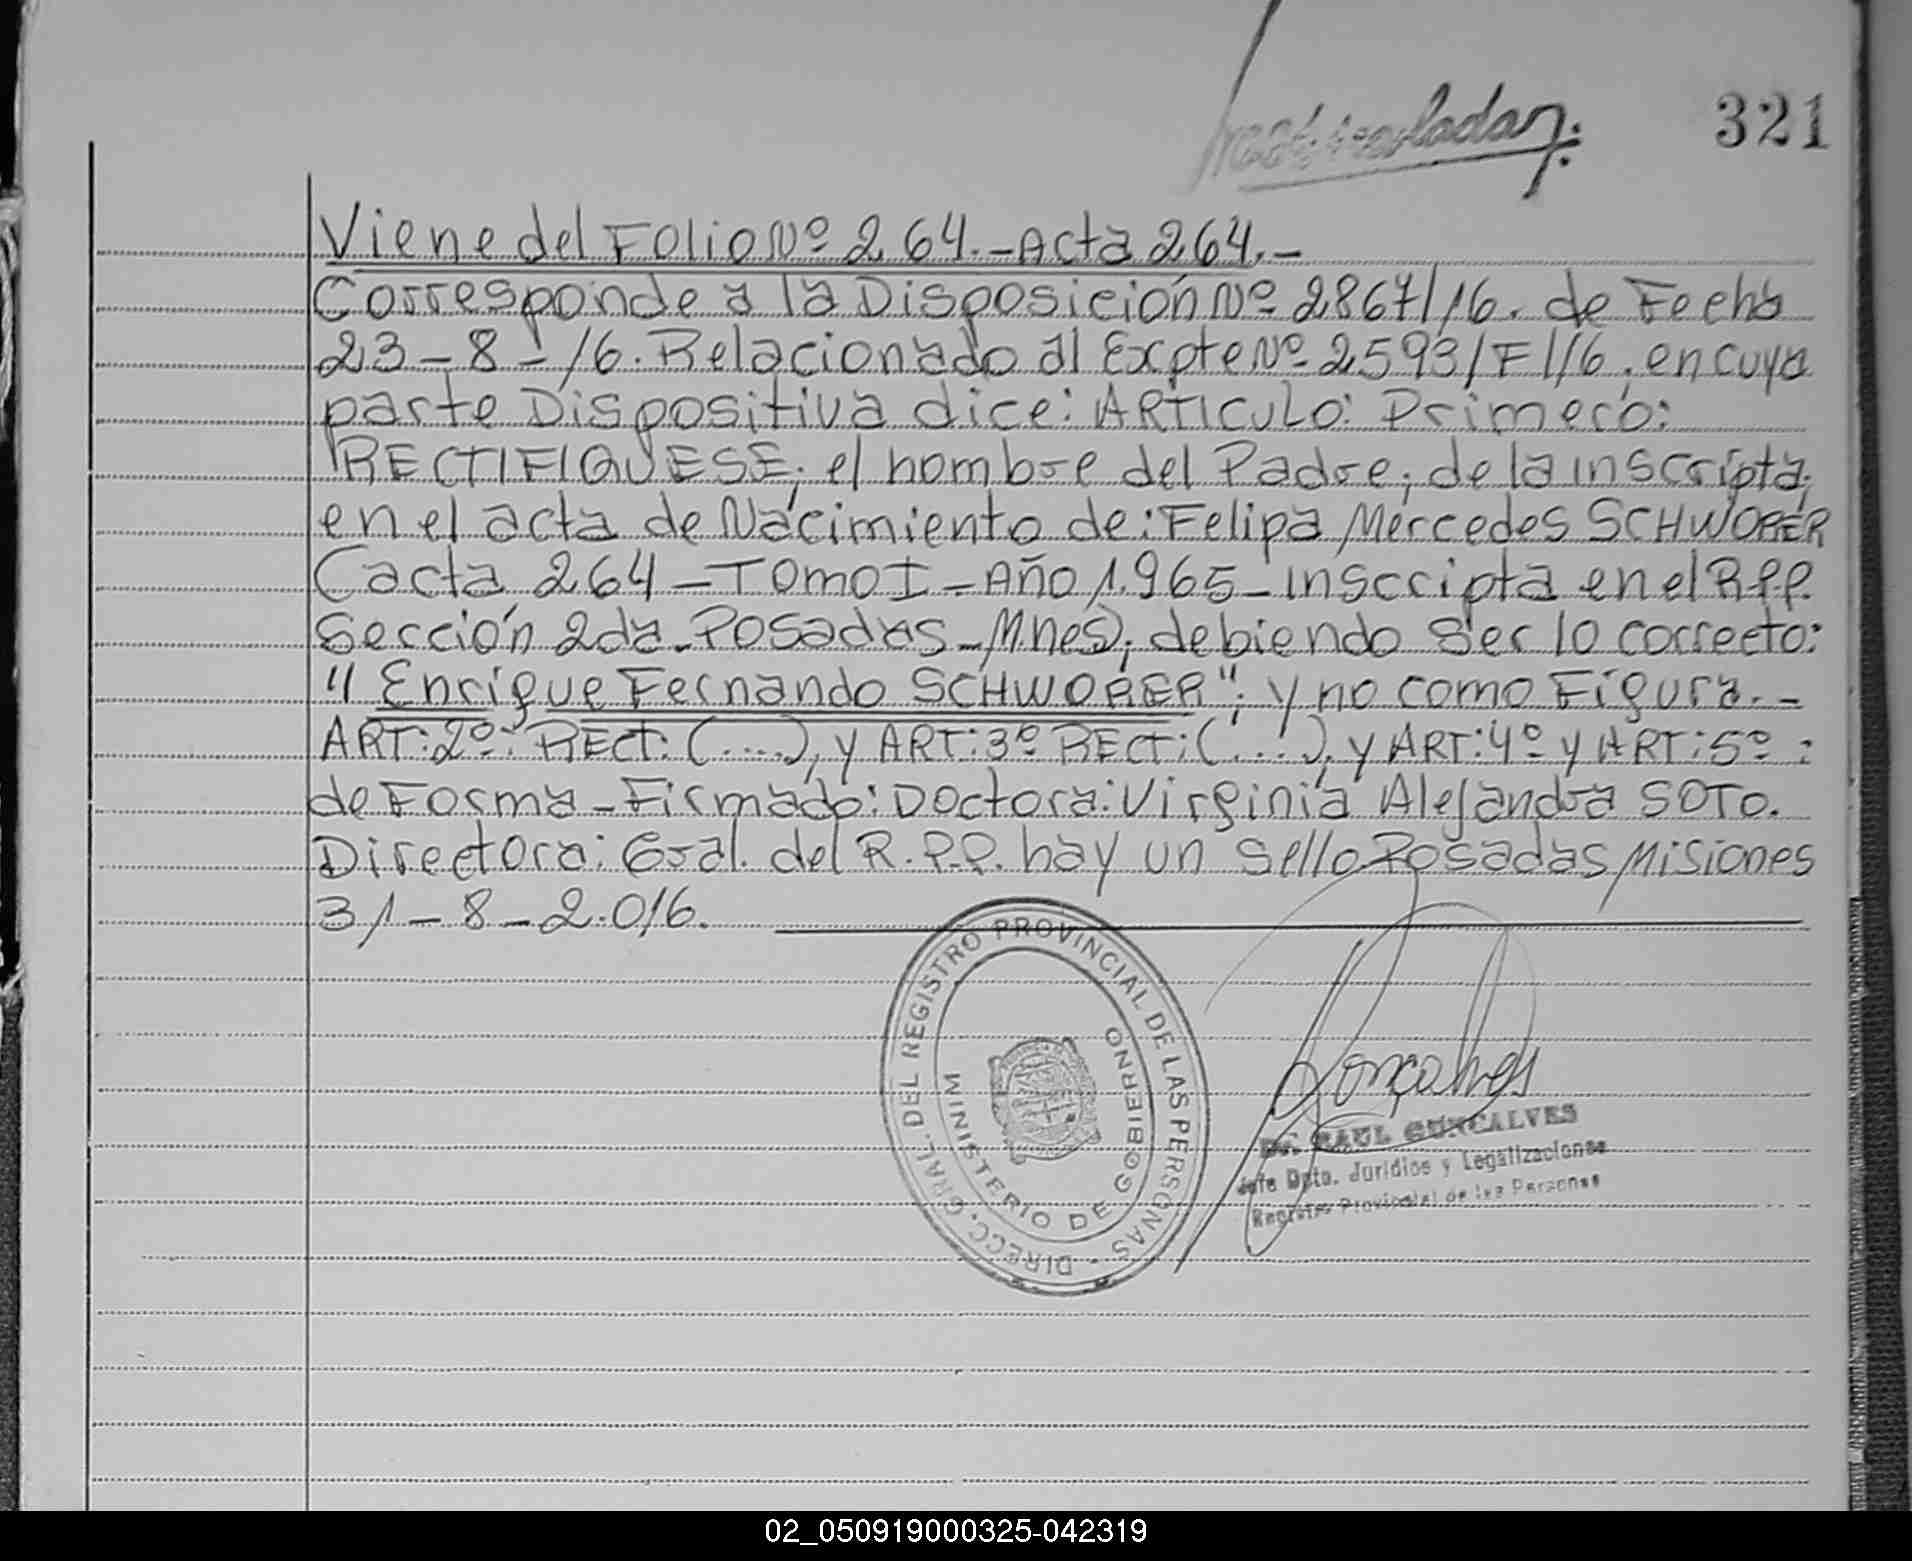 321
Viene del Folio Nº 264.-Acta 264.-
Corresponde a la Disposición Nº 2867/16. de Fecha
23-8-16. Relacionado al Expte Nº 2593/F/16, en cuya
parte Dispositiva dice: ARTICULO: Primero:
RECTIFIQUESE; el nombre del Padre; de la inscripta;
en el acta de Nacimiento de: Felipa Mercedes SCHWORER
(acta 264-Tomo I-Año 1.965-inscripta en el R.P.P.
Sección 2da-Posadas-Mnes); debiendo ser lo correcto:
"Enrique Fernando SCHWORER"; y no como Figura.-
ART:2º: RECT: (....), y ART:3º RECT:(....), y ART:4º y ART:5º:
de Forma-Firmado: Doctora: Virginia Alejandra SOTO.
Directora: Gral. del R.P.P. hay un sello Posadas Misiones
31-8-2.016.
DIRECC. GRAL. DEL REGISTRO PROVINCIAL DE LAS PERSONAS
MINISTERIO DE GOBIERNO
Goncalves
Dr. RAUL GONCALVES
Jefe Dpto. Juridios y Legalizaciones
Registro Provincial de las Personas
02_050919000325-042319